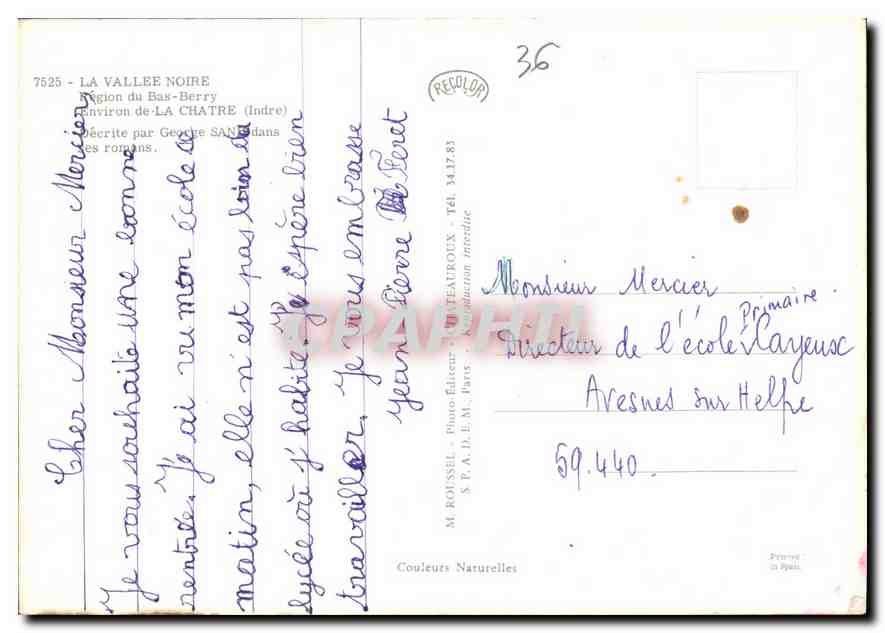 7525 - LA VALLEE NOIRE
Région du Bas-Berry
Environ de LA CHATRE (Indre)
Décrite par George SAND dans
ses romans.
36
RECOLOR
Cher Monsieur Mercier,
Je vous souhaite une bonne
rentrée. J'ai vu mon école ce
matin, elle n'est pas loin du
lycée où j'habite. J'espère bien
travailler. Je vous embrasse
Jean Pierre Feret
M. ROUSSEL - Photo-Éditeur - CHATEAUROUX - Tél. 34.17.83
S. P. A. D. E. M., Paris - Reproduction interdite
Monsieur Mercier
Directeur de l'école Primaire Cayeux
Avesnes sur Helpe
59.440.
CPAPHIL
Couleurs Naturelles
Printed
in Spain